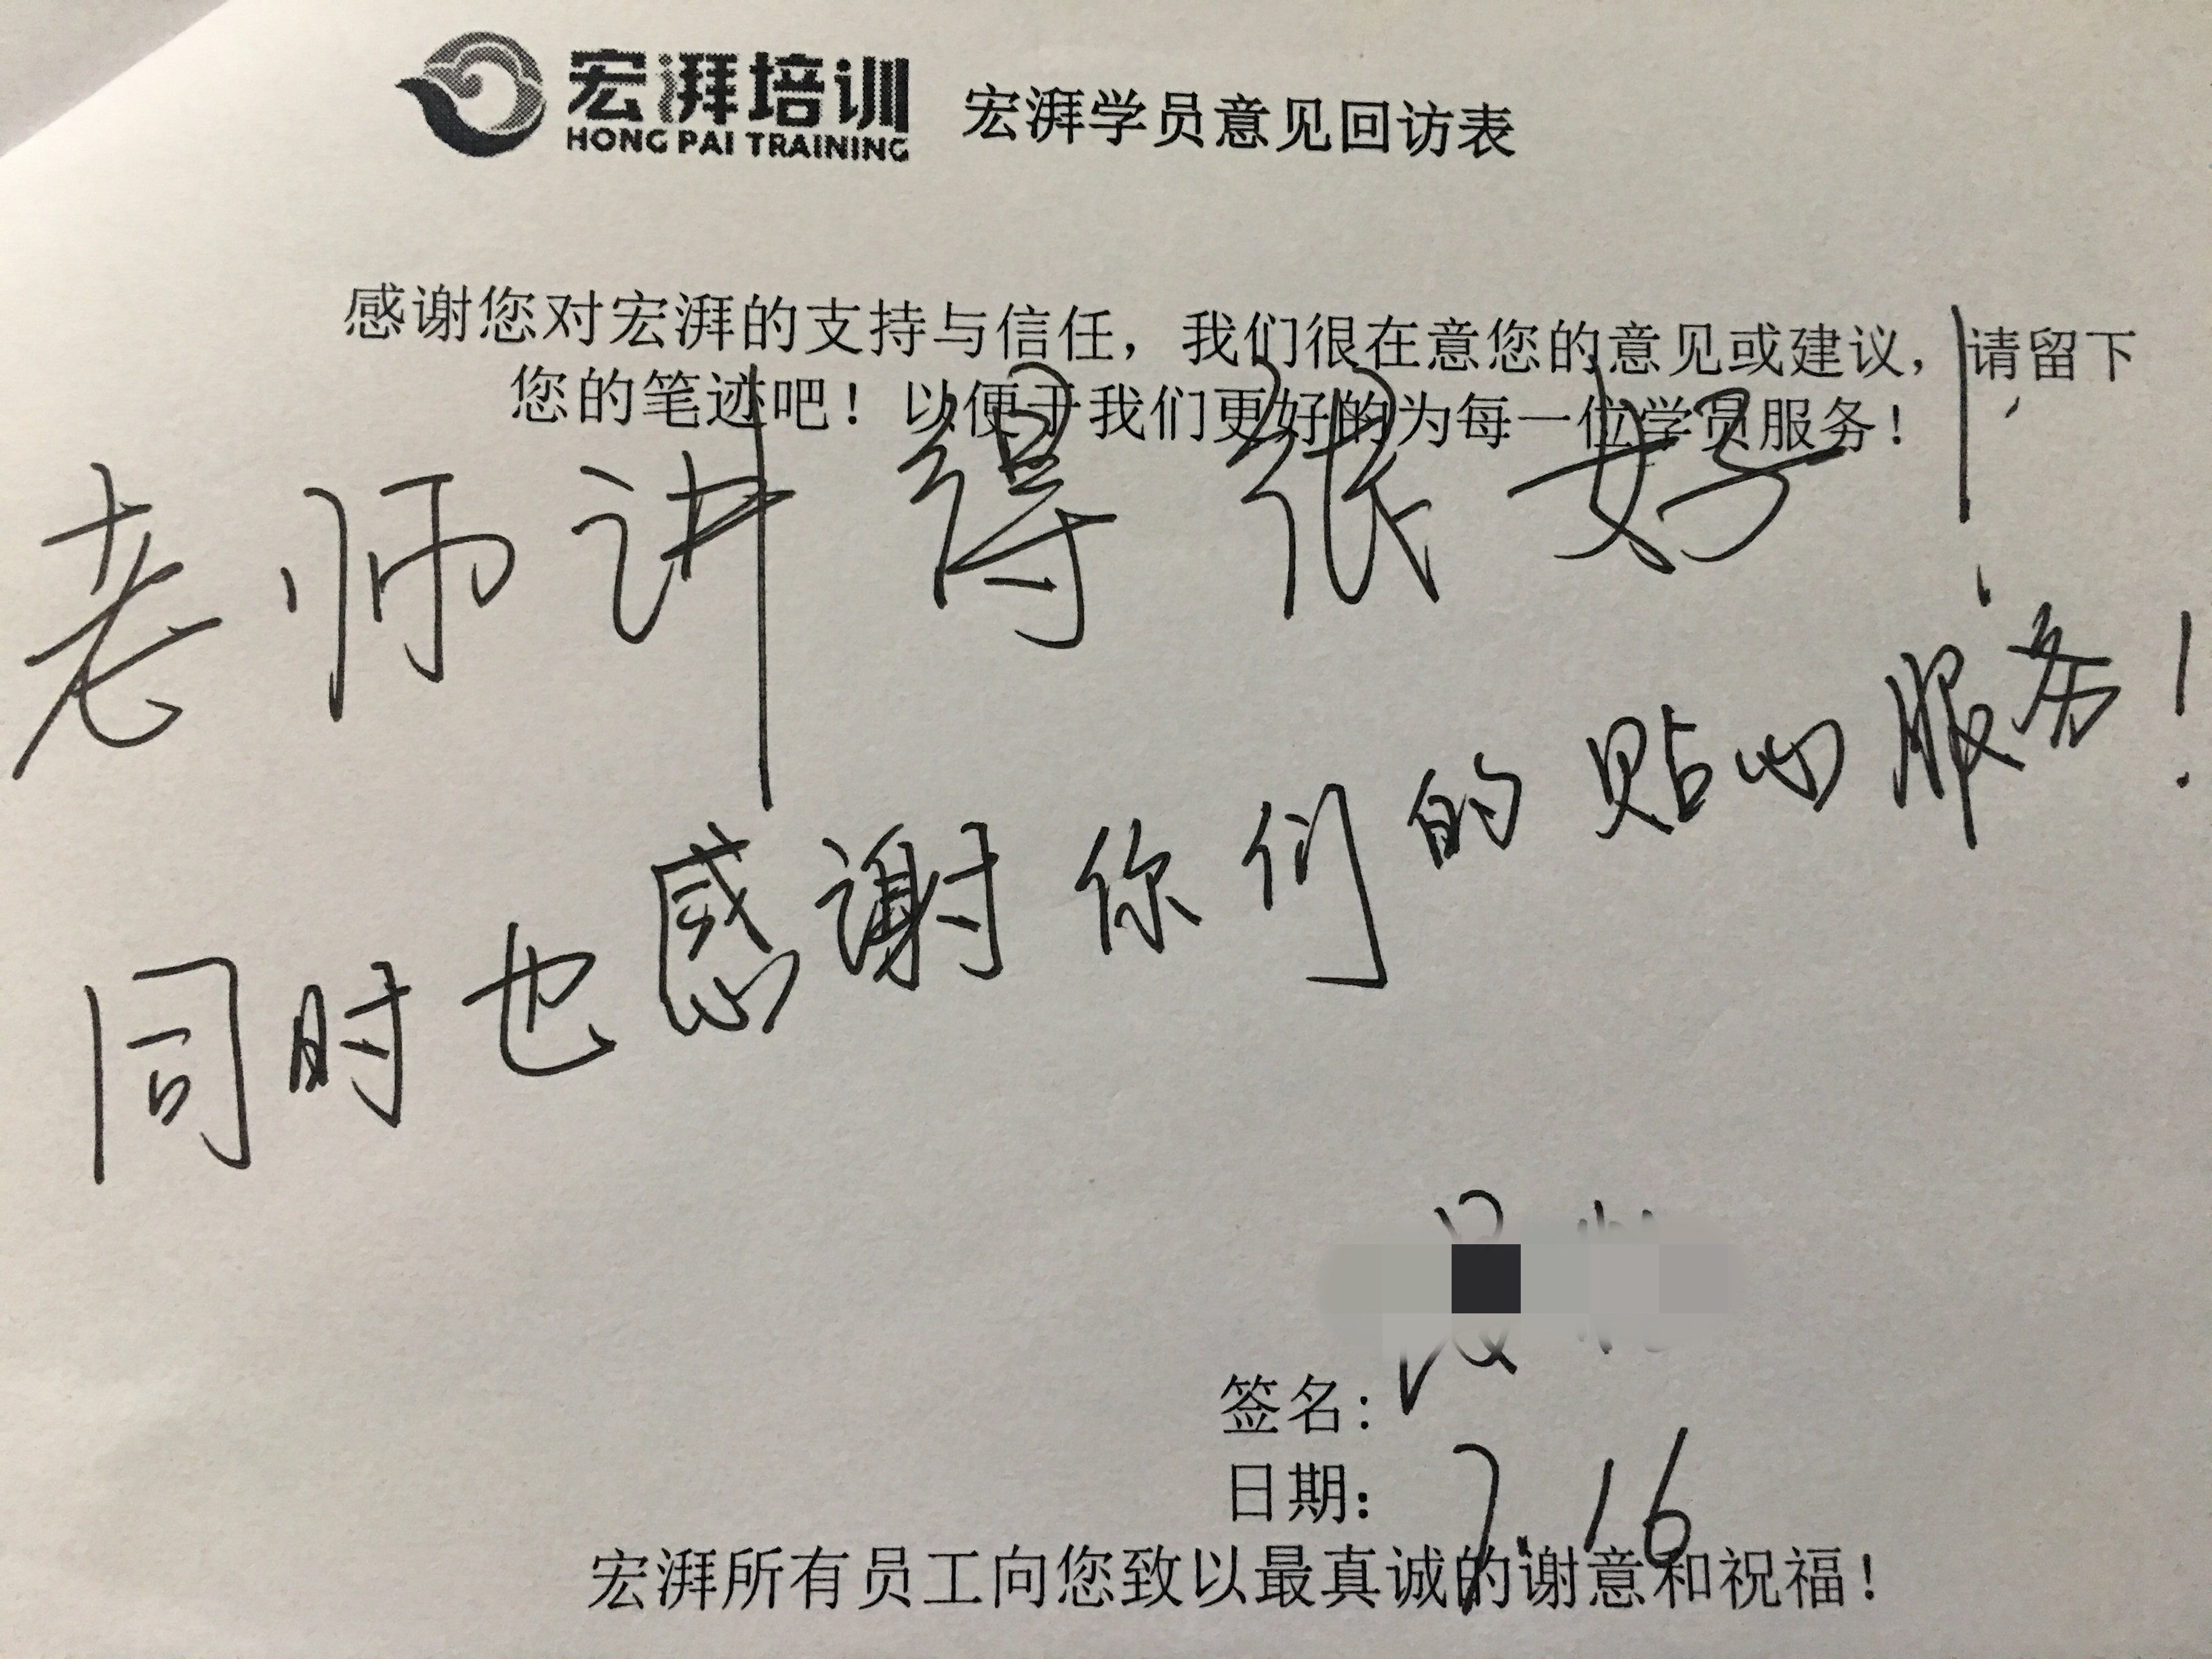 宏湃培训
HONG PAI TRAINING
宏湃学员意见回访表
感谢您对宏湃的支持与信任，我们很在意您的意见或建议，请留下
您的笔迹吧！以便于我们更好的为每一位学员服务！
老师讲得很好！
同时也感谢你们的贴心服务！
签名：
日期：7.16
宏湃所有员工向您致以最真诚的谢意和祝福！